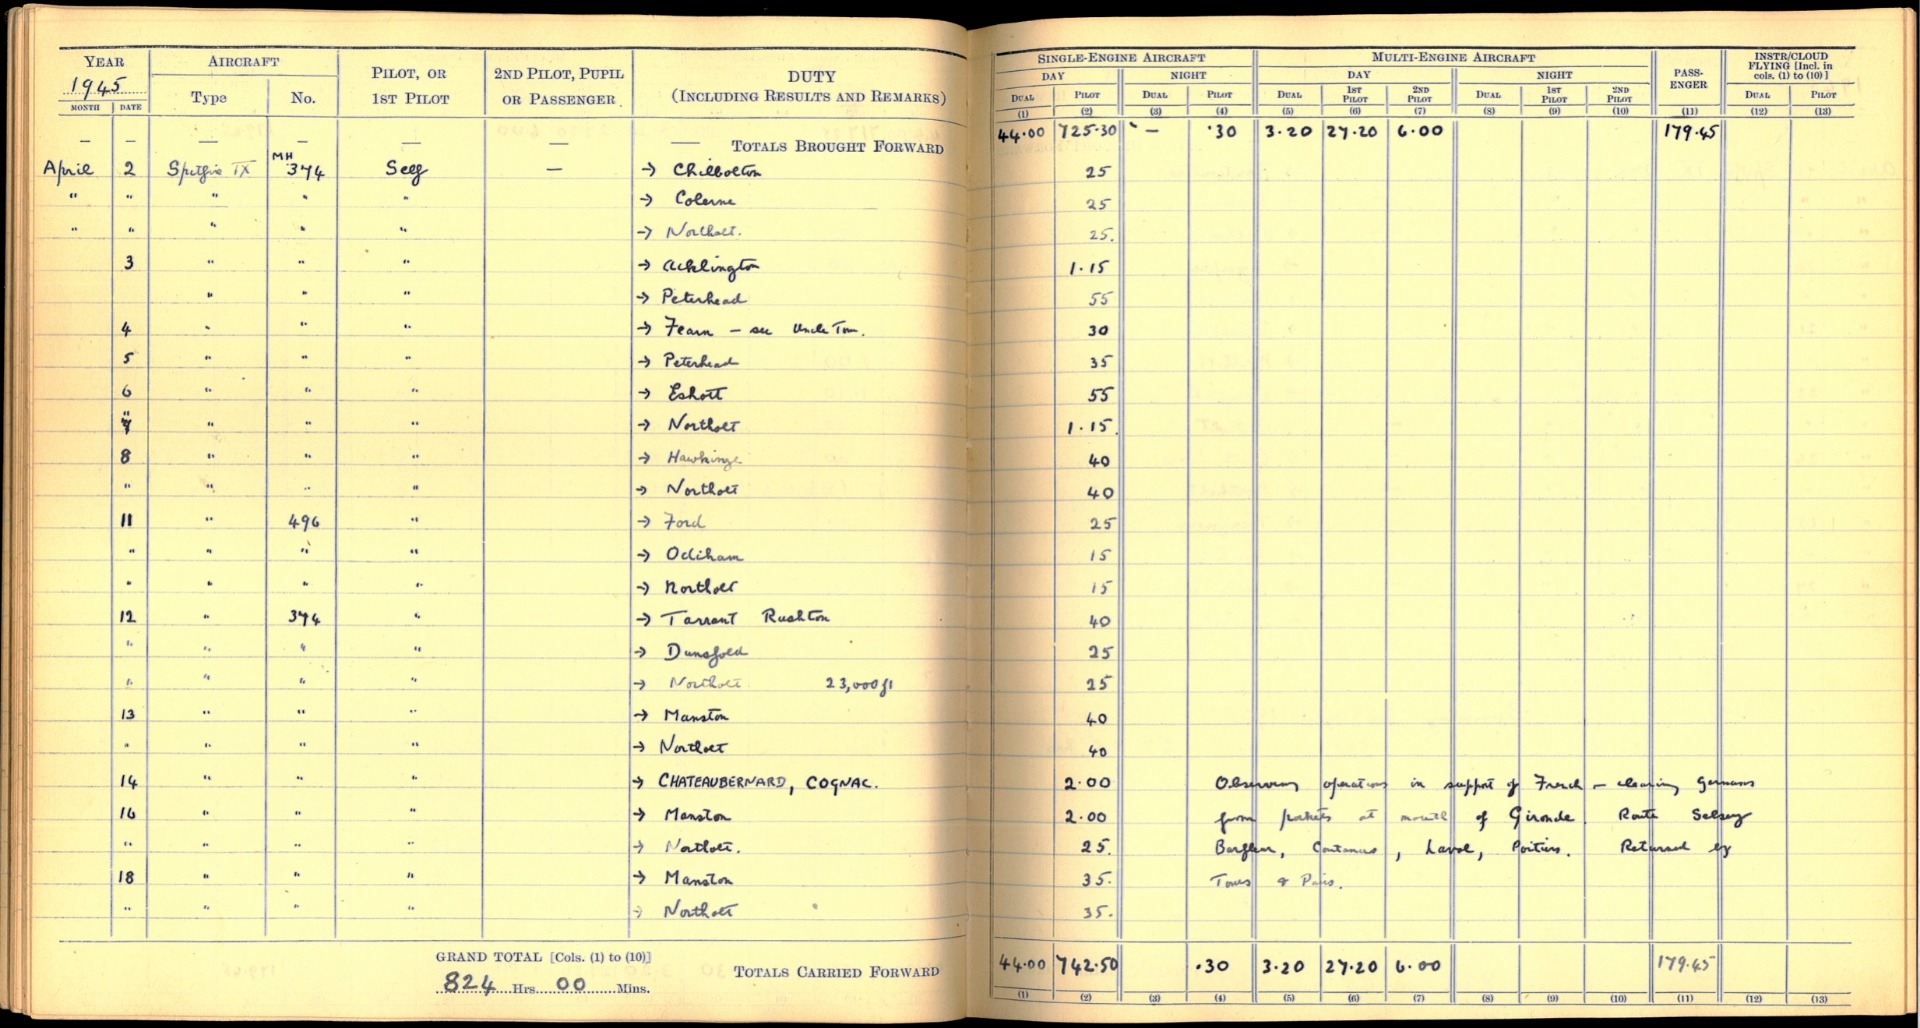 YEAR AIRCRAFT PILOT, OR 1ST PILOT 2ND PILOT, PUPIL OR PASSENGER DUTY (INCLUDING RESULTS AND REMARKS) SINGLE-ENGINE AIRCRAFT MULTI-ENGINE AIRCRAFT PASS-ENGER INSTR/CLOUD FLYING [Incl. in cols. (1) to (10)]
1945 Type No. DAY NIGHT DAY NIGHT
MONTH DATE DUAL PILOT DUAL PILOT DUAL 1ST PILOT 2ND PILOT DUAL 1ST PILOT 2ND PILOT DUAL PILOT
(1) (2) (3) (4) (5) (6) (7) (8) (9) (10) (11) (12) (13)
— — — — — — — TOTALS BROUGHT FORWARD 44.00 725.30 — .30 3.20 27.20 6.00 179.45
April 2 Spitfire IX MH 374 Self — → Chilbolton 25
" " " " " → Colerne 25
" " " " " → Northolt. 25.
3 " " " → Acklington 1.15
" " " → Peterhead 55
4 " " " → Fearn — see Uncle Tom. 30
5 " " " → Peterhead 35
6 " " " → Eshott 55
" 7 " " " → Northolt 1.15.
8 " " " → Hawkinge 40
" " " " → Northolt 40
11 " 496 " → Ford 25
" " " " → Odiham 15
" " " " → Northolt 15
12 " 374 " → Tarrant Rushton 40
" " " " → Dunsfold 25
" " " " → Northolt 23,000 ft 25
13 " " " → Manston 40
" " " " → Northolt 40
14 " " " → CHATEAUBERNARD, COGNAC. 2.00 Observing operations in support of French — clearing Germans
16 " " " → Manston 2.00 from pockets at mouth of Gironde. Route Selsey
" " " " → Northolt. 25. Barfleur, Coutances, Laval, Poitiers. Returned by
18 " " " → Manston 35. Tours & Paris.
" " " " → Northolt 35.
GRAND TOTAL [Cols. (1) to (10)]
824 Hrs. 00 Mins. TOTALS CARRIED FORWARD 44.00 742.50 .30 3.20 27.20 6.00 179.45
(1) (2) (3) (4) (5) (6) (7) (8) (9) (10) (11) (12) (13)